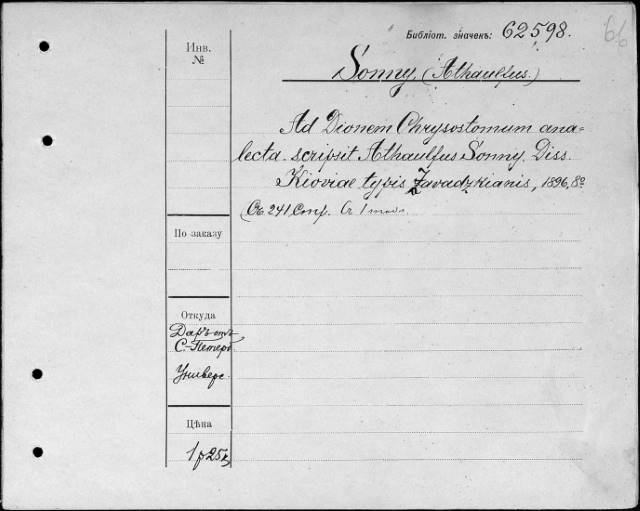 Библіот. значекъ: 62598.
66
Инв.
№
Sonny (Athaulfus.)
Ad Dionem Chrysostomum ana=
lecta scripsit Athaulfus Sonny. Diss.
Kioviae typis Zavadzkianis, 1896, 8º
Съ 241 стр.
По заказу
Откуда
Даръ отъ
С.-Петерб.
Универс.
Цѣна
1 р 25 к